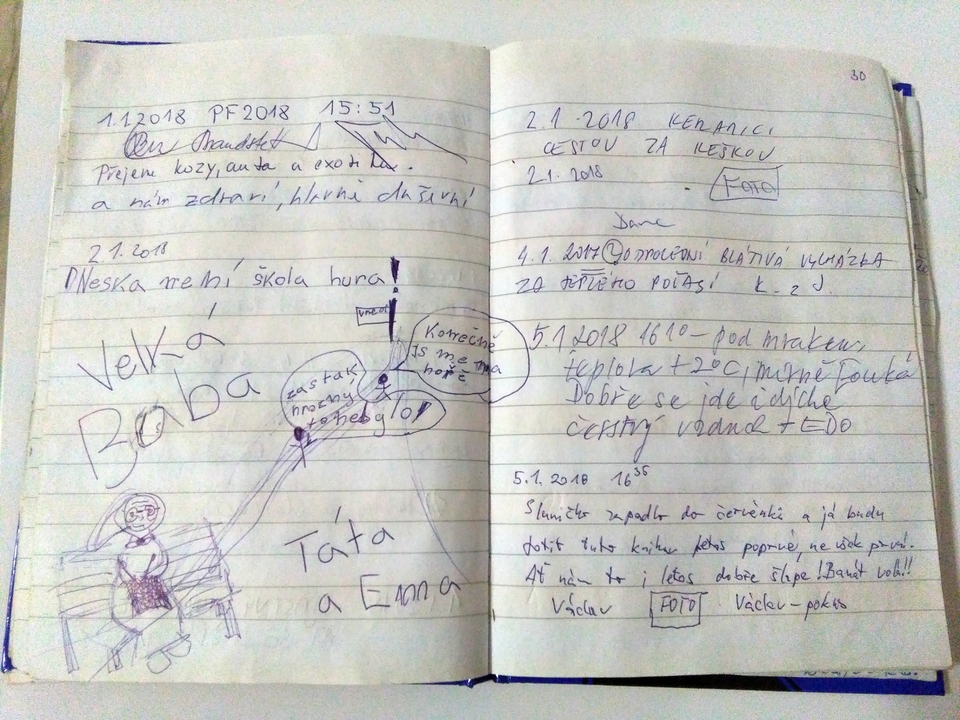 1.1.2018 PF2018 15:51
Přejem kozy, auta a exoti
a nám zdraví, hlavně duševní
2.1.2018
DNeska není škola hura!
Velká
Baba
Konečně
jsme na
hoře
zas tak
hrozný
to neby lo!
Táta
a Ema
30
2.1.2018 KERAMICI
CESTOU ZA KEŠKOU
2.1.2018
FOTO
Dana
4.1.2017 ODPOLEDNÍ BLÁTIVÁ VYCHÁZKA
ZA TEPLÉHO POČASÍ K. z J.
5.1.2018 16¹⁰ – pod mrakem,
teplota +2°C, mírně fouká
Dobře se jde i dýchá
čerstvý vzduch + EDO
5.1.2018 16³⁵
Sluníčko zapadlo do červánků a já budu
fotit tuto knihu letos poprvé, ne však prvně.
Ať nám to i letos dobře šlape! Banát volá!!
Václav FOTO Václav – pokus